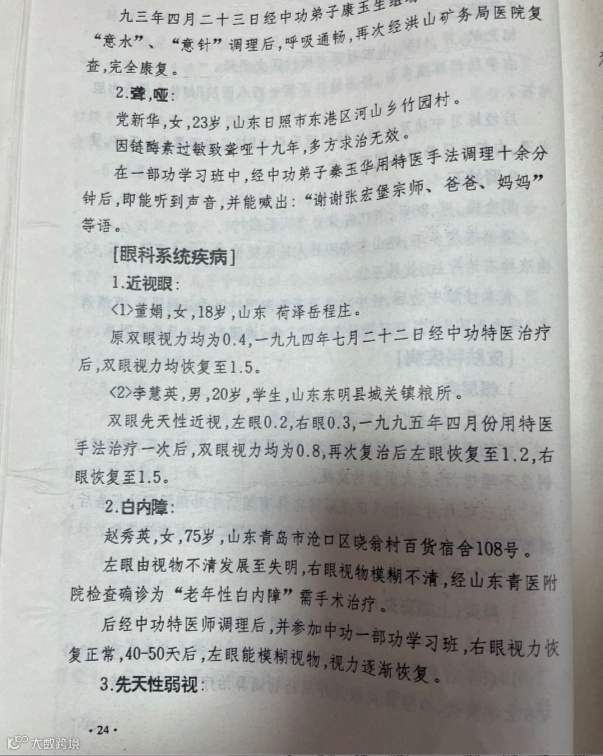 九三年四月二十三日经中功弟子康玉生组
“意水”、“意针”调理后,呼吸通畅,再次经洪山矿务局医院复
查,完全康复。
2.聋,哑:
党新华,女,23岁,山东日照市东港区河山乡竹园村。
因链酶素过敏致聋哑十九年,多方求治无效。
在一部功学习班中,经中功弟子秦玉华用特医手法调理十余分
钟后,即能听到声音,并能喊出:“谢谢张宏堡宗师、爸爸、妈妈”
等语。
[眼科系统疾病]
1.近视眼:
<1>董娟,女,18岁,山东 荷泽岳程庄。
原双眼视力均为0.4,一九九四年七月二十二日经中功特医治疗
后,双眼视力均恢复至1.5。
<2>李慧英,男,20岁,学生,山东东明县城关镇粮所。
双眼先天性近视,左眼0.2,右眼0.3,一九九五年四月份用特医
手法治疗一次后,双眼视力均为0.8,再次复治后左眼恢复至1.2,右
眼恢复至1.5。
2.白内障:
赵秀英,女,75岁,山东青岛市沧口区晓翁村百货宿舍108号。
左眼由视物不清发展至失明,右眼视物模糊不清,经山东青医附
院检查确诊为“老年性白内障”需手术治疗。
后经中功特医师调理后,并参加中功一部功学习班,右眼视力恢
复正常,40-50天后,左眼能模糊视物,视力逐渐恢复。
3.先天性弱视:
·24·
大数跨境